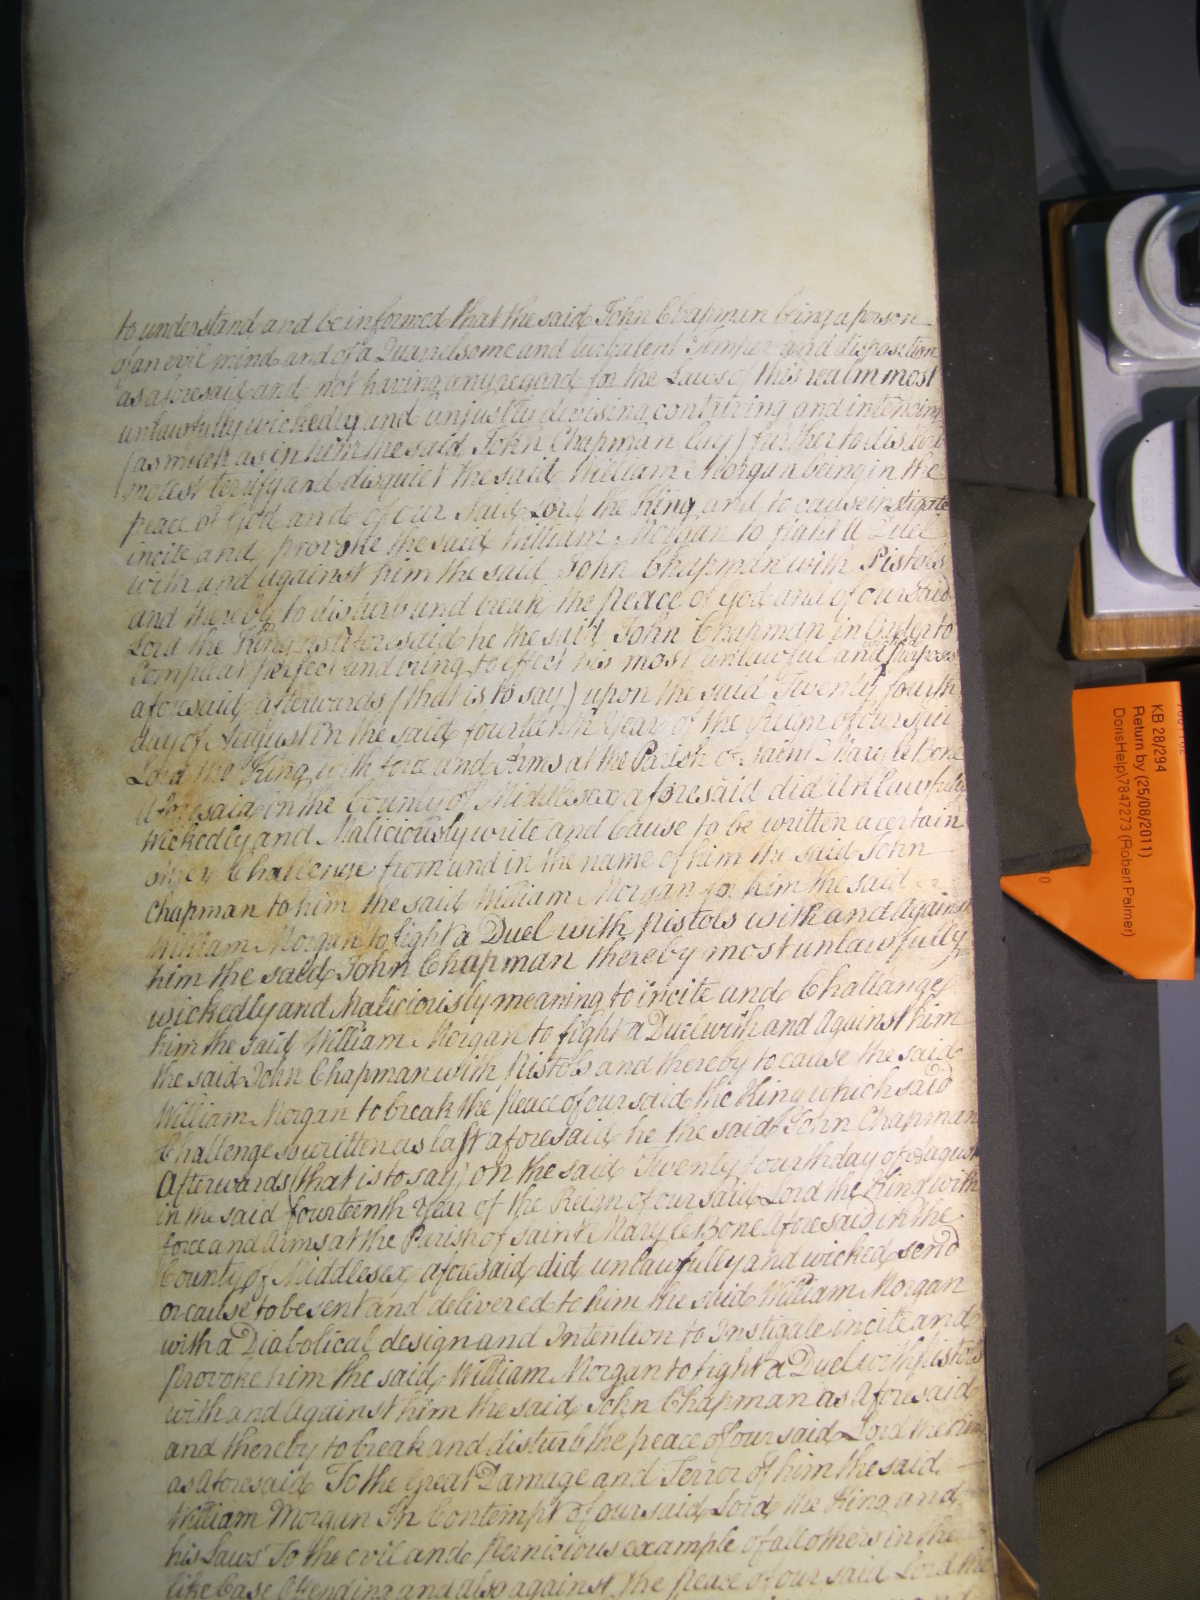 to understand and be informed that the said John Chapman being a person
of an evil mind and of a Quarrelsome and turbulent Temper and disposition
as aforesaid and not having any regard for the Laws of this realm most
unlawfully wickedly and unjustly devising contriving and intending
(as much as in him the said John Chapman lay) further to disturb
molest terrify and disquiet the said William Morgan being in the
peace of God and of our said Lord the King and to cause instigate
incite and provoke the said William Morgan to fight a Duel
with and against him the said John Chapman with Pistols
and thereby to disturb and break the peace of God and of our said
Lord the King as aforesaid he the said John Chapman in Order to
Compleat perfect and bring to effect his most unlawful and purposes
aforesaid afterwards (that is to say) upon the said Twenty fourth
day of August in the said fourteenth Year of the Reign of our said
Lord the King with force and Arms at the Parish of Saint Mary le Bone
Aforesaid in the County of Middlesex aforesaid did unlawfully
wickedly and Maliciously write and Cause to be written a certain
other Challenge from and in the name of him the said John
Chapman to him the said William Morgan for him the said
William Morgan to fight a Duel with Pistols with and Against
him the said John Chapman thereby most unlawfully
wickedly and Maliciously meaning to incite and Challange
him the said William Morgan to fight a Duel with and Against him
the said John Chapman with Pistols and thereby to cause the said
William Morgan to break the Peace of our said the King which said
Challenge so written as last aforesaid he the said John Chapman
Afterwards (that is to say) on the said Twenty fourth day of August
in the said fourteenth Year of the Reign of our said Lord the King with
force and Arms at the Parish of Saint Mary le Bone Aforesaid in the
County of Middlesex aforesaid did unlawfully and wicked send
or cause to be sent and delivered to him the said William Morgan
with a Diabolical design and Intention to Instigate incite and
Provoke him the said William Morgan to fight a Duel with pistols
with and Against him the said John Chapman as Aforesaid
and thereby to break and disturb the peace of our said Lord the King
as Aforesaid To the Great Damage and Terror of him the said
William Morgan In Contempt of our said Lord the King and
his Laws To the evil and Pernicious example of all others in the
like Case Offending and also against the Peace of our said Lord the
KB 28/294
Return by (25/08/2011)
DorisHelp\7847273 (Robert Palmer)